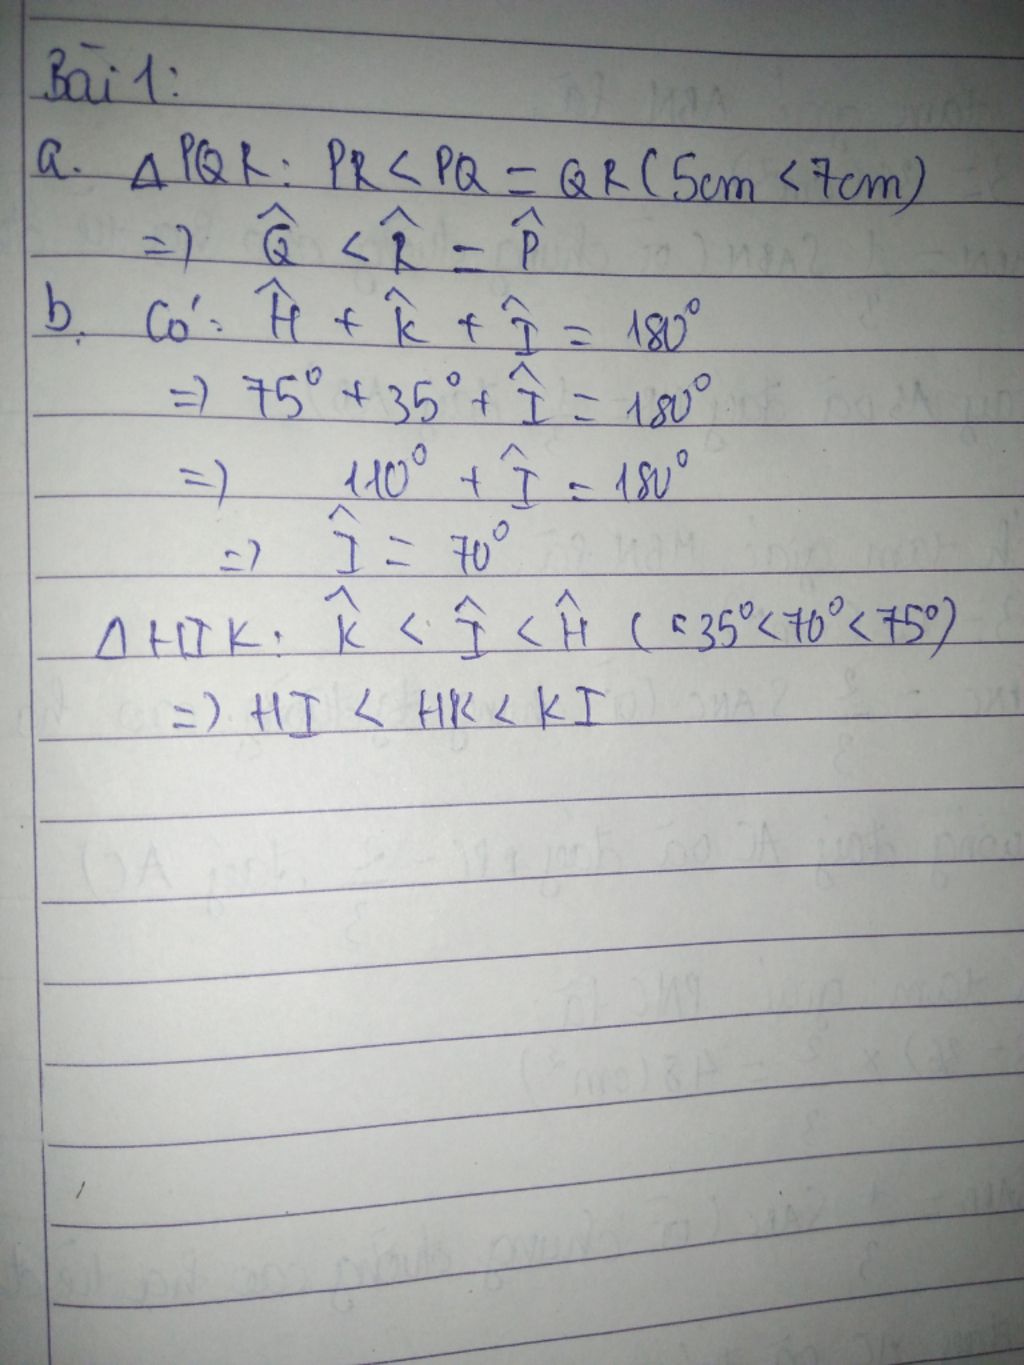 Bài 1:
a. Δ PQR: PR < PQ = QR (5cm < 7cm)
=> Q̂ < R̂ = P̂
b. Có: Ĥ + K̂ + Î = 180°
=> 75° + 35° + Î = 180°
=> 110° + Î = 180°
=> Î = 70°
Δ HIK: K̂ < Î < Ĥ (35° < 70° < 75°)
=> HI < HK < KI